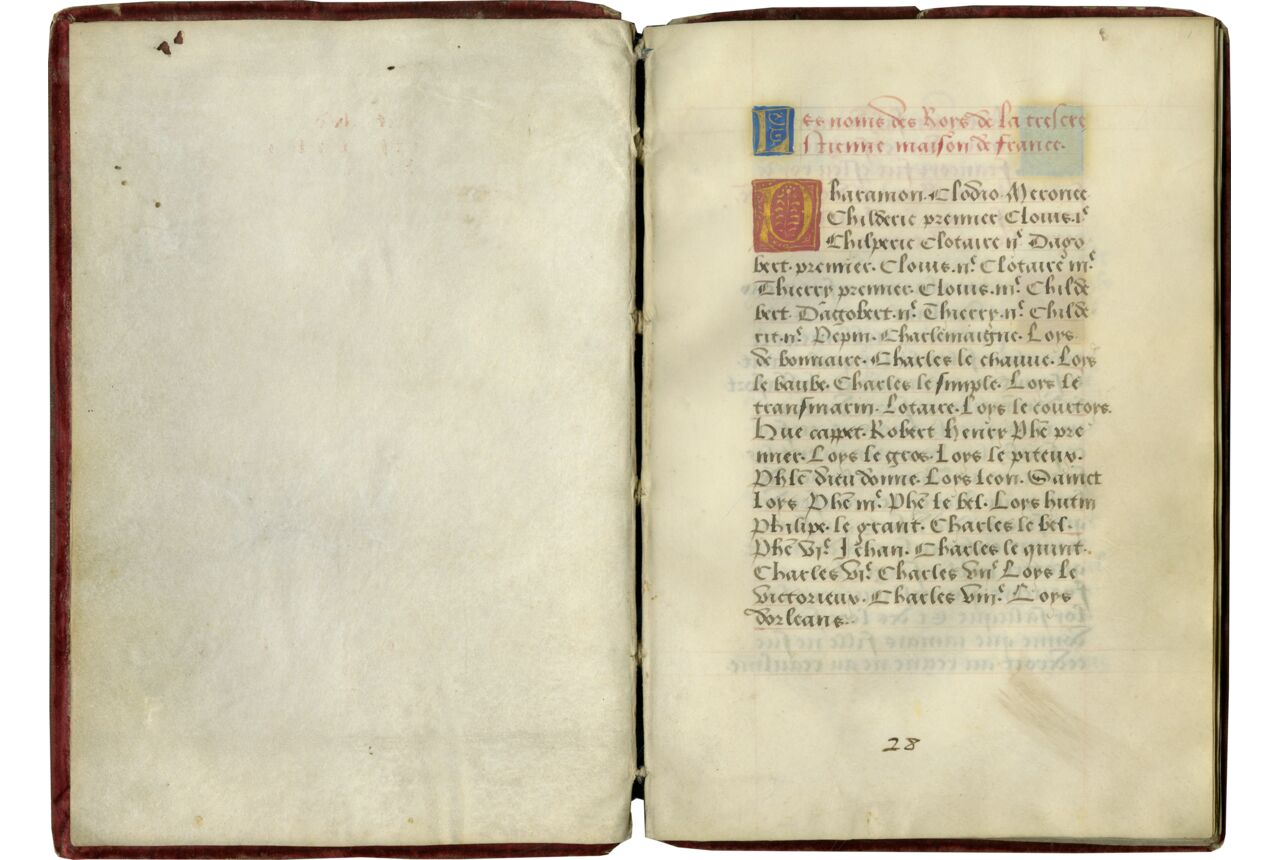 Les noms des Roys de la trescre
stienne maison de france.
Pharamon. Clodio. Meronee
Childeric premier Clouis. iͬ.
Chilperic Clotaire iiͬ. Dago
bert. premier. Clouis. iiͬ. Clotaire iiiͬ.
Thierry premier. Clouis. iiiͬ. Childe
bert. Dagobert. iiͬ. Thierry. iiͬ. Childe
ric. iiͬ. Pepin. Charlemaigne. Loys
de bonnaire. Charles le chauue. Loys
le baube. Charles le simple. Loys le
transmarin. Lotaire. Loys le courtoys.
Hue cappet. Robert Henry Phē pre
mier. Loys le gros. Loys le piteux.
Phlē dieu donne. Loys leon. Sainct
Loys Phē iiiͬ. Phē le bel. Loys hutin
Philipe. le grant. Charles le bel.
Phē viͬ. Jehan. Charles le quint.
Charles viͬ. Charles viiͬ. Loys le
victorieux. Charles viiiͬ. Loys
dorleans.
28